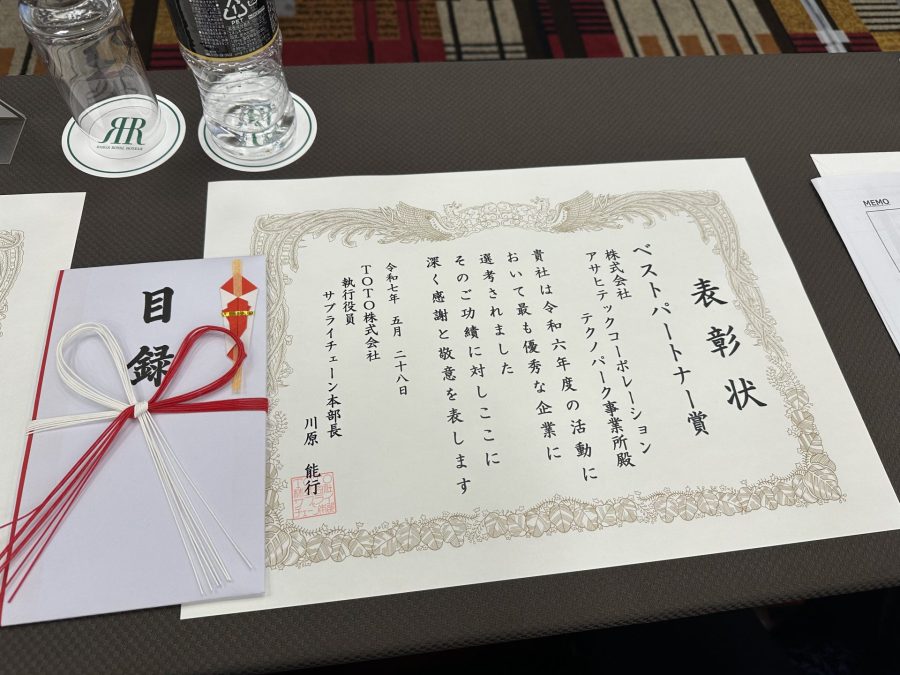 表彰状
ベストパートナー賞
株式会社
アサヒテックコーポレーション
テクノパーク事業所殿
貴社は令和六年度の活動に
おいて最も優秀な企業に
選考されました
そのご功績に対しここに
深く感謝と敬意を表します
令和七年 五月 二十八日
TOTO株式会社
執行役員
サプライチェーン本部長
川原 能行
目録
MEMO
RIHGA ROYAL